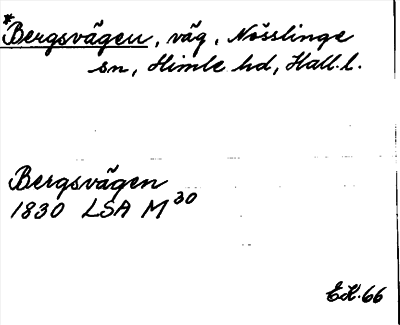 *Bergsvägen, väg, Nösslinge
sn, Himle hd, Hall.l.
Bergsvägen
1830 LSA M30
EH.66